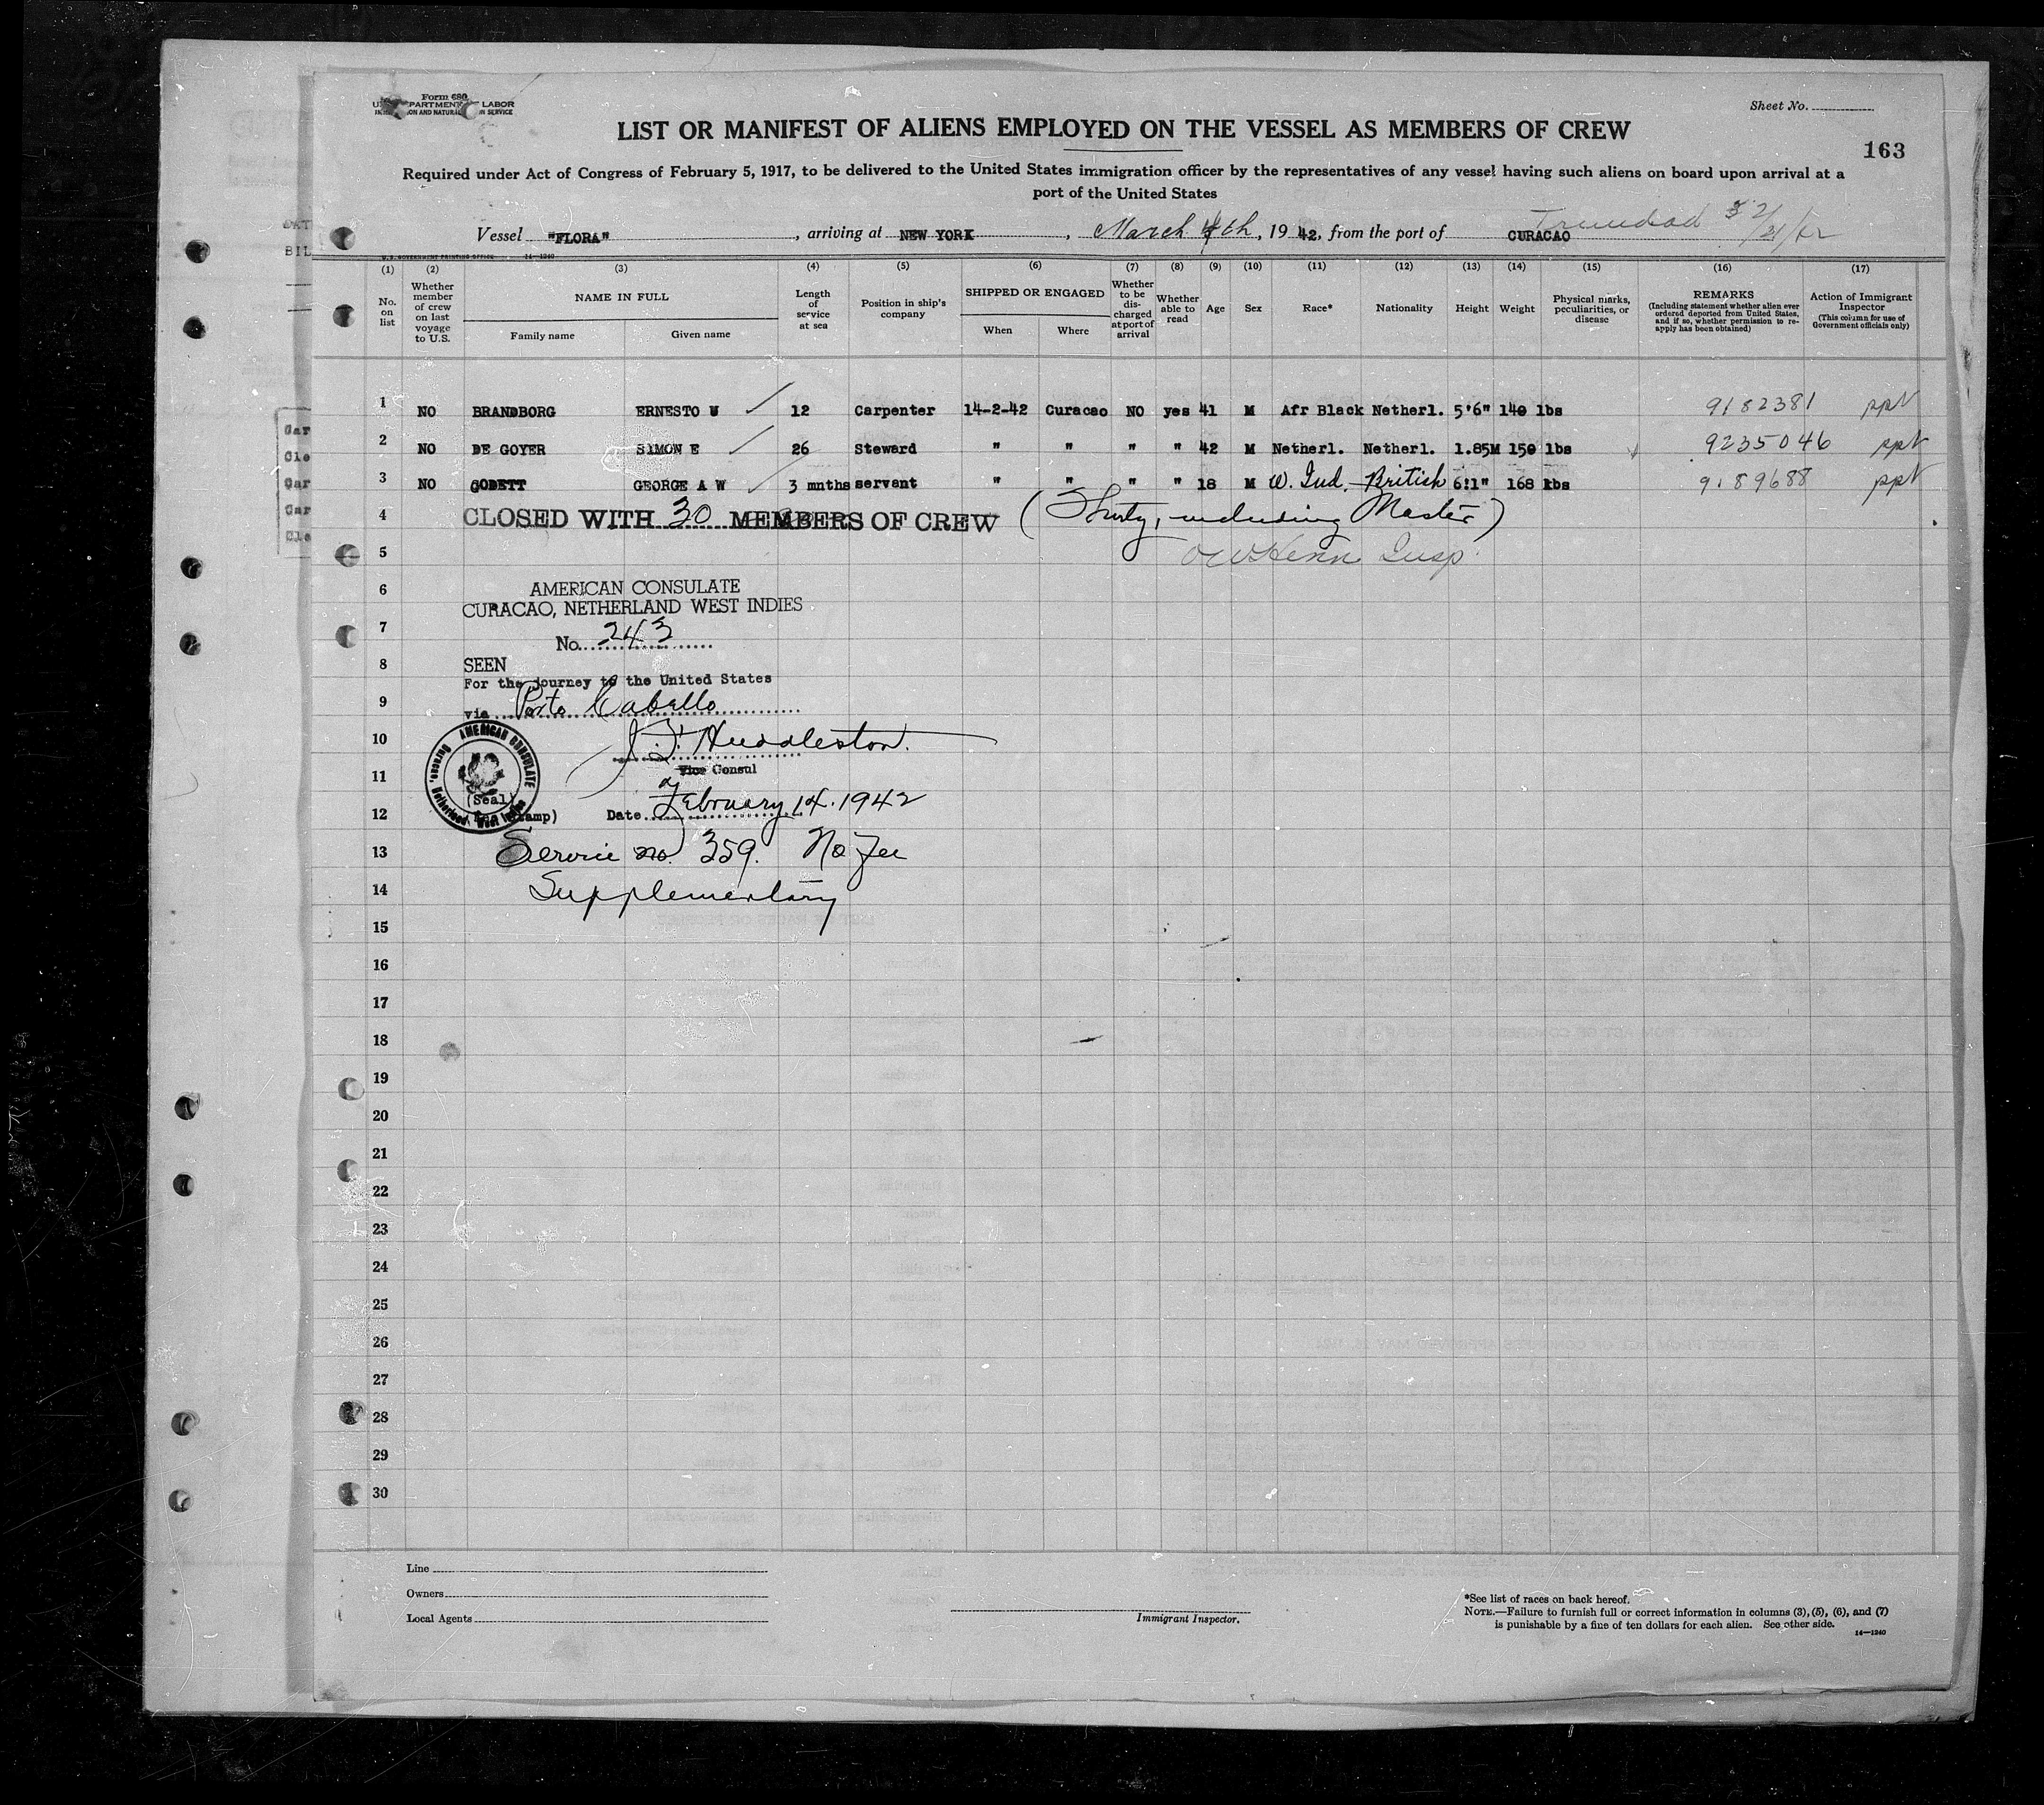 Form 680
U. S. DEPARTMENT OF LABOR
IMMIGRATION AND NATURALIZATION SERVICE
Sheet No.
LIST OR MANIFEST OF ALIENS EMPLOYED ON THE VESSEL AS MEMBERS OF CREW
163
Required under Act of Congress of February 5, 1917, to be delivered to the United States immigration officer by the representatives of any vessel having such aliens on board upon arrival at a
port of the United States
Vessel "FLORA", arriving at NEW YORK, March 4th, 1942, from the port of CURACAO Trinidad
U. S. GOVERNMENT PRINTING OFFICE 14—1240
(1) (2) (3) (4) (5) (6) (7) (8) (9) (10) (11) (12) (13) (14) (15) (16) (17)
No. on list
Whether member of crew on last voyage to U.S.
NAME IN FULL
Family name Given name
Length of service at sea
Position in ship's company
SHIPPED OR ENGAGED
When Where
Whether to be discharged at port of arrival
Whether able to read
Age Sex Race* Nationality Height Weight
Physical marks, peculiarities, or disease
REMARKS
(Including statement whether alien ever ordered deported from United States, and if so, whether permission to reapply has been obtained)
Action of Immigrant Inspector
(This column for use of Government officials only)
1 NO BRANDBORG ERNESTO W 12 Carpenter 14-2-42 Curacao NO yes 41 M Afr Black Netherl. 5'6" 140 lbs 9182381 ppt
2 NO DE GOYER SIMON E 26 Steward " " " " 42 M Netherl. Netherl. 1.85M 150 lbs 9235046 ppt
3 NO GODETT GEORGE A W 3 mnths servant " " " " 18 M W. Ind. British 6'1" 168 lbs 9189688 ppt
4 CLOSED WITH 30 MEMBERS OF CREW (Thirty, including Master)
5 Insp.
6 AMERICAN CONSULATE
CURACAO, NETHERLAND WEST INDIES
7 No. 243
8 SEEN
For the journey to the United States
9 via Porto Cabello
10 J. F. Huddleston.
11 Vice Consul
12 Date February 14. 1942
(Seal)
(Fee Stamp)
AMERICAN CONSULATE
Curacao, Netherland West Indies
13 Service no. 359. No fee
14 Supplementary
15
16
17
18
19
20
21
22
23
24
25
26
27
28
29
30
Line
Owners
Local Agents
Immigrant Inspector.
*See list of races on back hereof.
NOTE.—Failure to furnish full or correct information in columns (3), (5), (6), and (7)
is punishable by a fine of ten dollars for each alien. See other side.
14—1240